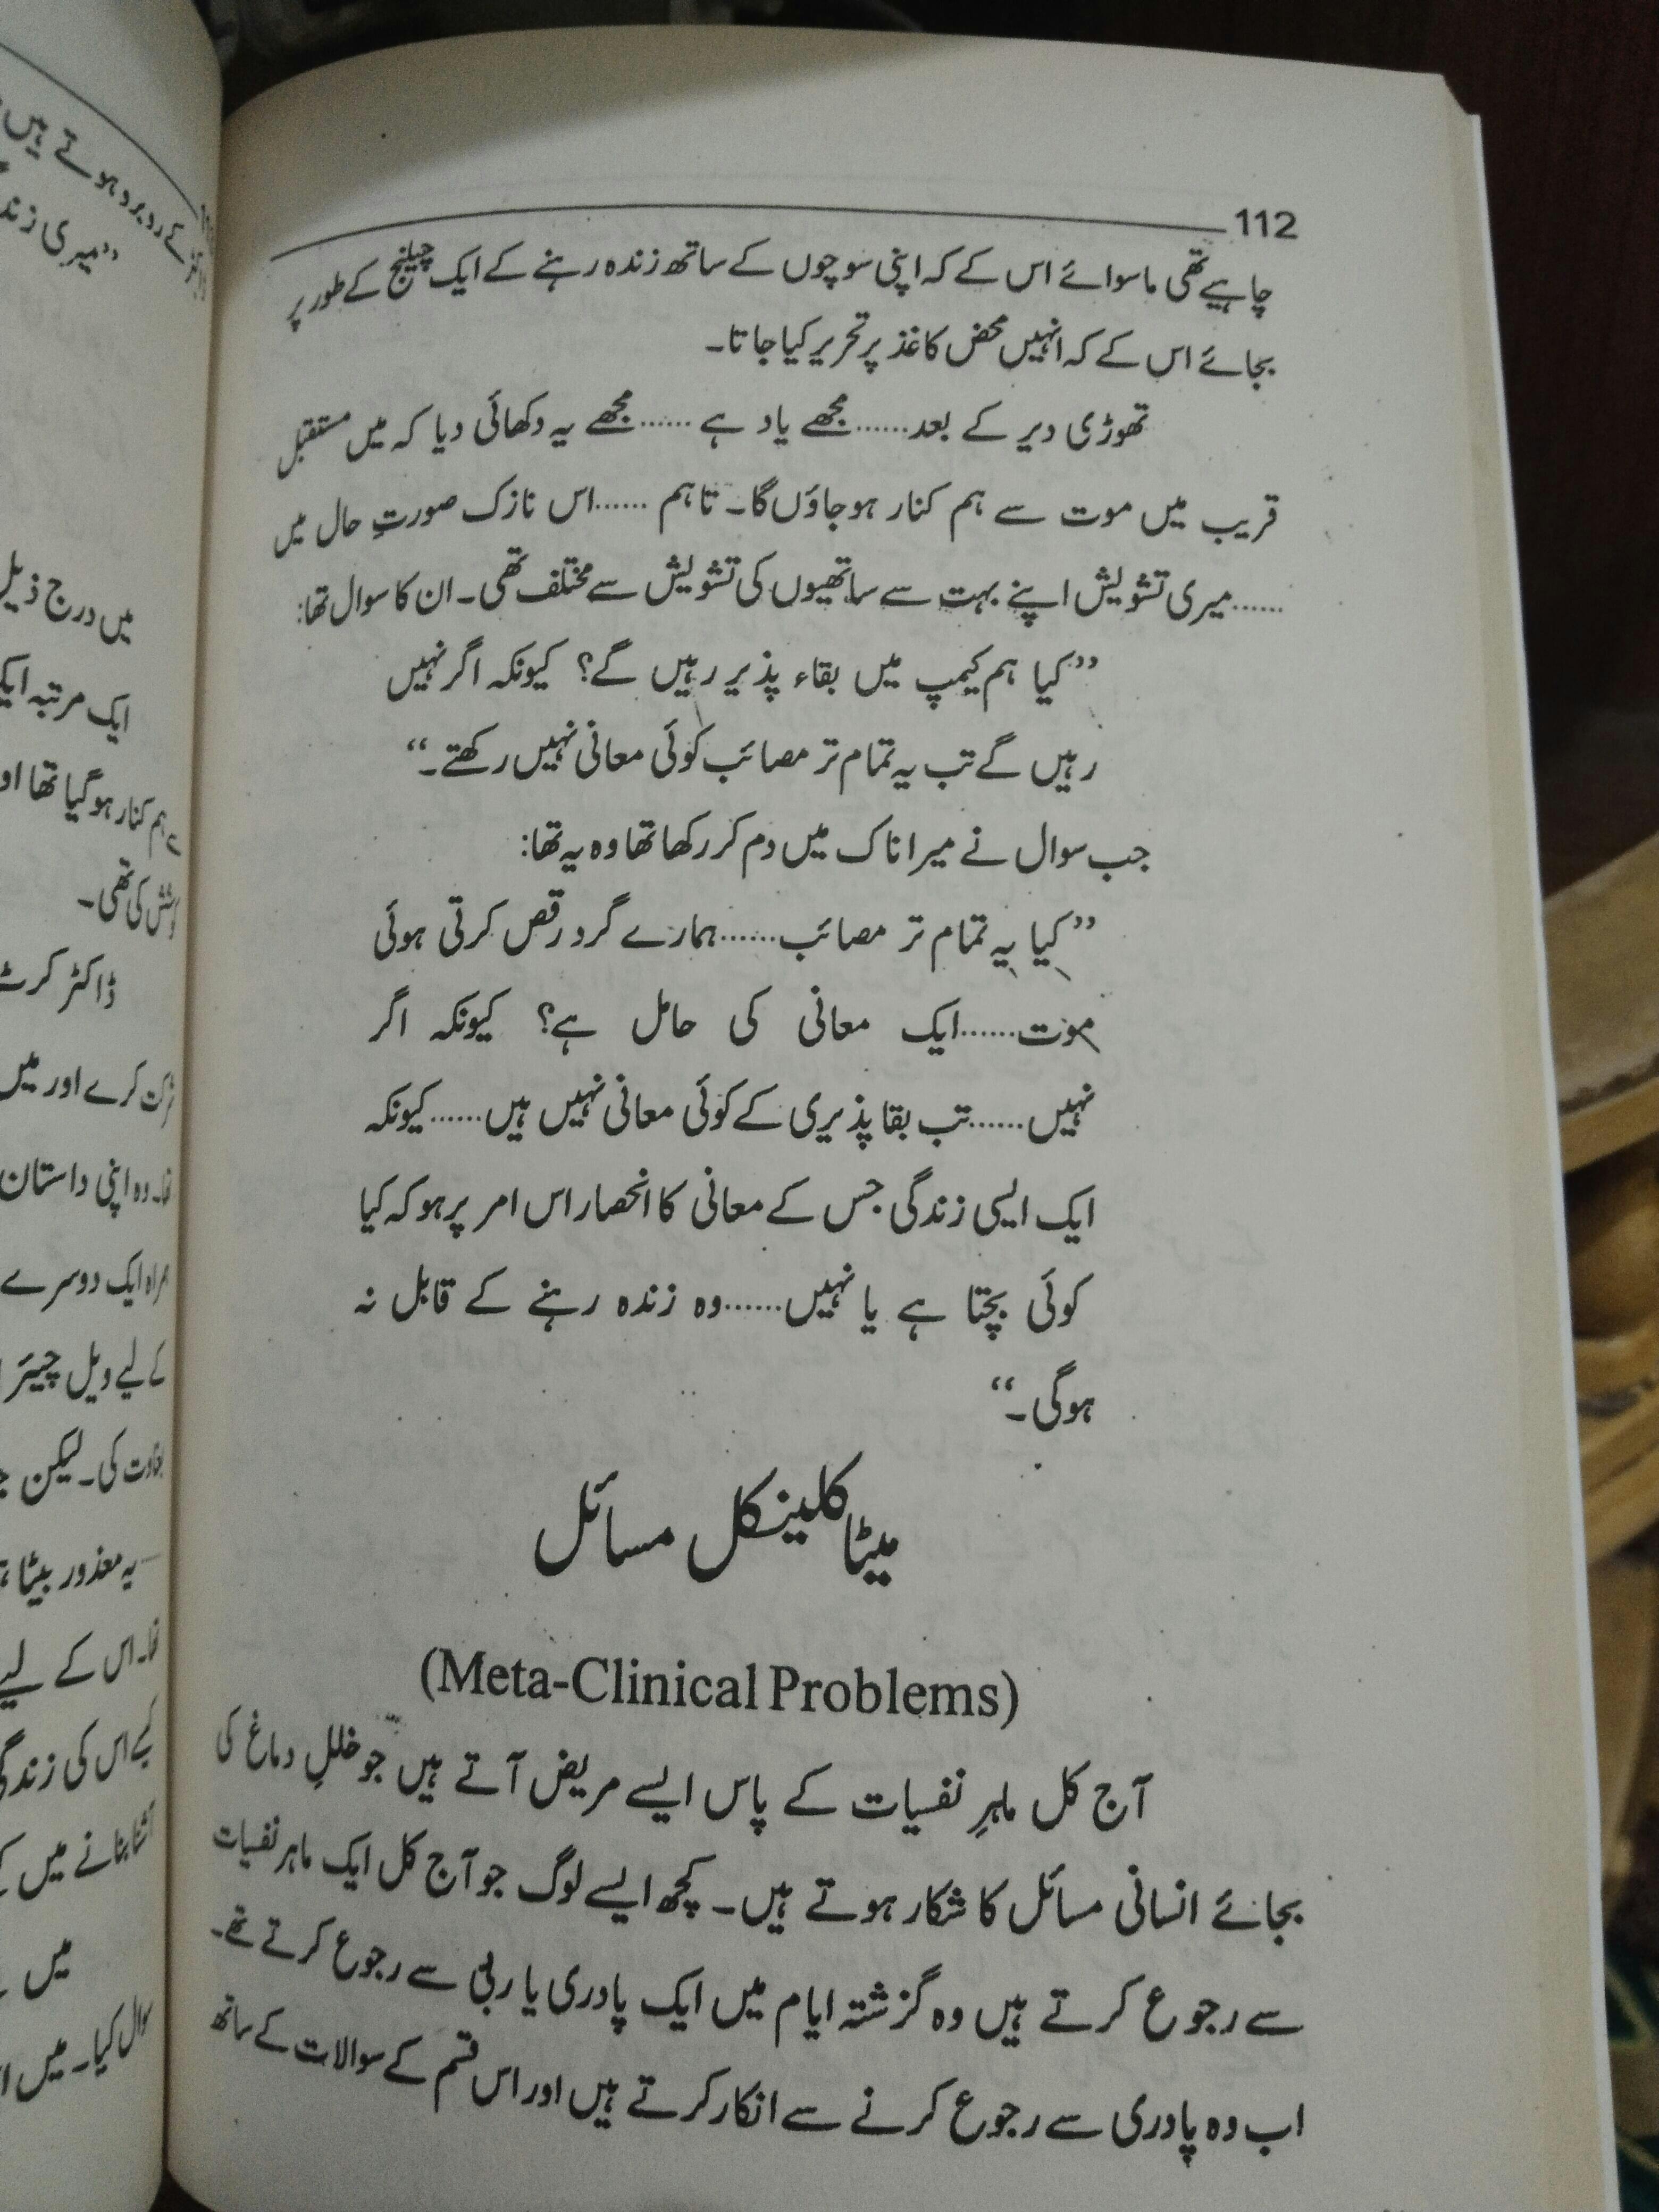 112
چاہیے تھی ماسوائے اس کے کہ اپنی سوچوں کے ساتھ زندہ رہنے کے ایک چیلنج کے طور پر
بجائے اس کے کہ انہیں محض کاغذ پر تحریر کیا جاتا۔
تھوڑی دیر کے بعد......مجھے یاد ہے ......مجھے یہ دکھائی دیا کہ میں مستقبل
قریب میں موت سے ہم کنار ہو جاؤں گا۔ تاہم ......اس نازک صورتِ حال میں
......میری تشویش اپنے بہت سے ساتھیوں کی تشویش سے مختلف تھی۔ ان کا سوال تھا:
”کیا ہم کیمپ میں بقاء پذیر رہیں گے؟ کیونکہ اگر نہیں
رہیں گے تب یہ تمام تر مصائب کوئی معانی نہیں رکھتے۔“
جب سوال نے میرا ناک میں دم کر رکھا تھا وہ یہ تھا:
”کیا یہ تمام تر مصائب......ہمارے گرد رقص کرتی ہوئی
موت......ایک معانی کی حامل ہے؟ کیونکہ اگر
نہیں......تب بقا پذیری کے کوئی معانی نہیں ہیں......کیونکہ
ایک ایسی زندگی جس کے معانی کا انحصار اس امر پر ہو کہ کیا
کوئی بچتا ہے یا نہیں......وہ زندہ رہنے کے قابل نہ
ہوگی۔“
میٹا کلینکل مسائل
(Meta-Clinical Problems)
آج کل ماہرِ نفسیات کے پاس ایسے مریض آتے ہیں جو خللِ دماغ کی
بجائے انسانی مسائل کا شکار ہوتے ہیں۔ کچھ ایسے لوگ جو آج کل ایک ماہر نفسیات
سے رجوع کرتے ہیں وہ گزشتہ ایام میں ایک پادری یا ربی سے رجوع کرتے تھے۔
اب وہ پادری سے رجوع کرنے سے انکار کرتے ہیں اور اس قسم کے سوالات کے ساتھ
کے روبرو ہوتے ہیں
”میری
میں درج ذیل
ایک مرتبہ
ہم کنار ہو گیا تھا
کی تھی۔
ڈاکٹر
کرے اور میں
وہ اپنی داستان
ایک دوسرے
کے لیے ویل چیئر
کی۔ لیکن
یہ معذور بیٹا
اس کے لیے
اس کی
بنانے میں
میں
کیا۔ میں